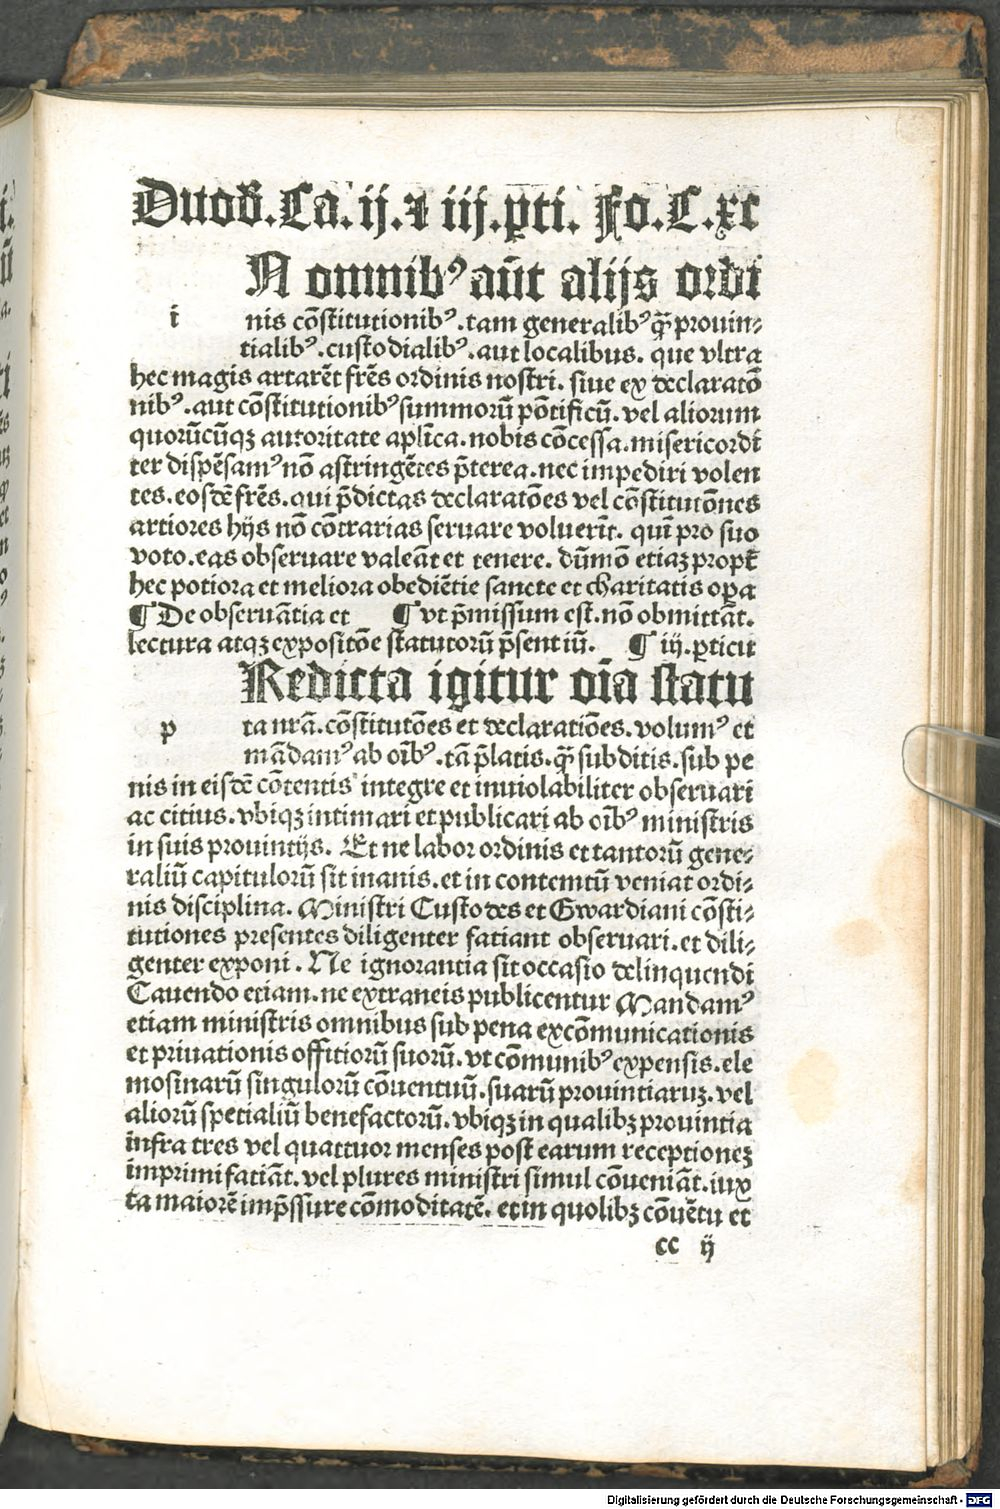 Duod̄. Ca. ij. ⁊ iij. pti. Fo. C. xc
N omnibꝰ aūt alijs ordi
i nis cōstitutionibꝰ. tam generalibꝰ q̄ꝫ prouin⸗
tialibꝰ. custodialibꝰ. aut localibus. que vltra
hec magis artarēt fr̄es ordinis nostri. siue ex declaratō
nibꝰ. aut cōstitutionibꝰ summorū pōtificū. vel aliorum
quorūcūqꝫ autoritate apl̄ica. nobis cōcessa. misericordi
ter dispēsamꝰ nō astringētes p̄terea. nec impediri volen
tes. eosdē fr̄es. qui p̄dictas declaratōes vel cōstitutōnes
artiores hijs nō cōtrarias seruare voluerīt. quī pro suo
voto. eas obseruare valeāt et tenere. dūmō etiaꝫ propt̄
hec potiora et meliora obediētie sancte et charitatis oꝑa
¶ De obseruātia et ¶ vt p̄missum est. nō obmittāt.
lectura atqꝫ expositōe statutorū p̄sentiū. ¶ iij. ꝑticu
Redicta igitur oīa statu
p ta nr̄a. cōstitutōes et declaratiōes. volumꝰ et
mādamꝰ ab oībꝰ. tā p̄latis. q̄ꝫ subditis. sub pe
nis in eisdē cōtentis integre et inuiolabiliter obseruari
ac citius. vbiqꝫ intimari et publicari ab oībꝰ ministris
in suis prouintijs. Et ne labor ordinis et tantorū gene⸗
raliū capitulorū sit inanis. et in contemtū veniat ordi⸗
nis disciplina. Ministri Custodes et Gwardiani cōsti⸗
tutiones presentes diligenter fatiant obseruari. et dili⸗
genter exponi. Ne ignorantia sit occasio delinquendi
Cauendo etiam. ne extraneis publicentur Mandamꝰ
etiam ministris omnibus sub pena excōmunicationis
et priuationis offitiorū suorū. vt cōmunibꝰ expensis. ele
mosinarū singulorū cōuentuū. suarū prouintiaruꝫ. vel
aliorū spetialiū benefactorū. vbiqꝫ in qualibꝫ prouintia
infra tres vel quattuor menses post earum receptioneꝫ
imprimi fatiāt. vel plures ministri simul cōueniāt. iux
ta maiorē imp̄ssure cōmoditatē. et in quolibꝫ cōuētu et
cc ij
Digitalisierung gefördert durch die Deutsche Forschungsgemeinschaft - DFG